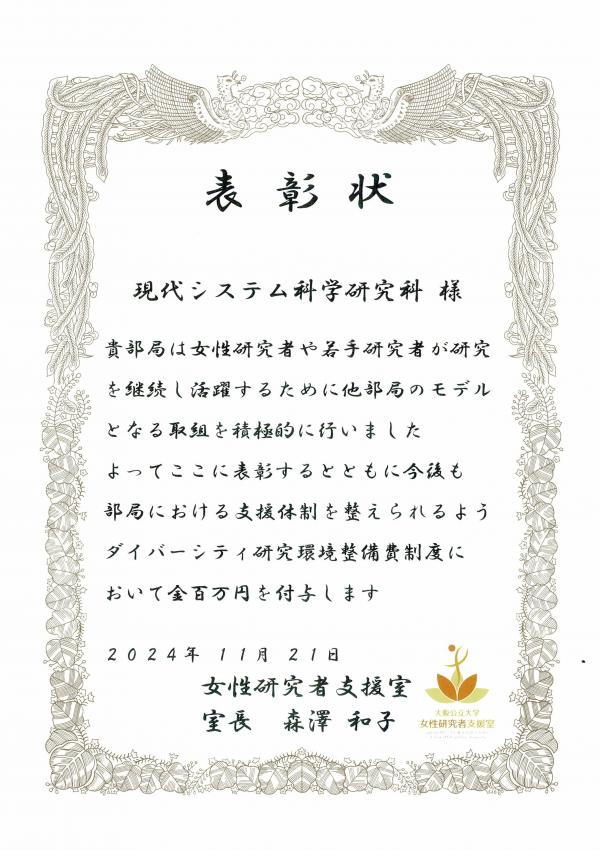 表彰状
現代システム科学研究科 様
貴部局は女性研究者や若手研究者が研究
を継続し活躍するために他部局のモデル
となる取組を積極的に行いました
よってここに表彰するとともに今後も
部局における支援体制を整えられるよう
ダイバーシティ研究環境整備費制度に
おいて金百万円を付与します
2024年 11月 21日
女性研究者支援室
室長 森澤 和子
大阪公立大学
女性研究者支援室